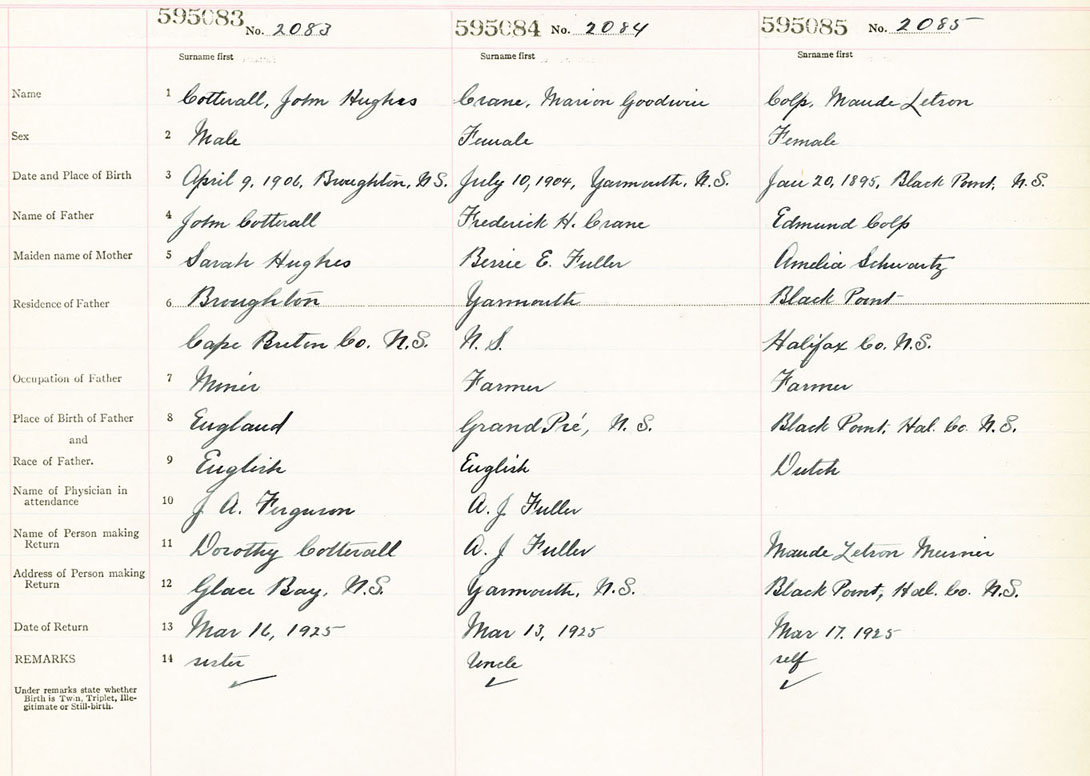 595083 No. 2083 595084 No. 2084 595085 No. 2085
Surname first Surname first Surname first
Name 1 Cotterall, John Hughes Crane, Marion Goodwin Colp, Maude Letson
Sex 2 Male Female Female
Date and Place of Birth 3 April 9, 1906, Broughton, N.S. July 10, 1904, Yarmouth, N.S. Jan 20, 1895, Black Point, N.S.
Name of Father 4 John Cotterall Frederick H. Crane Edmund Colp
Maiden name of Mother 5 Sarah Hughes Bessie E. Fuller Amelia Schwartz
Residence of Father 6 Broughton Yarmouth Black Point
Cape Breton Co. N.S. N.S. Halifax Co. N.S.
Occupation of Father 7 Miner Farmer Farmer
Place of Birth of Father 8 England Grand Pré, N.S. Black Point, Hal. Co. N.S.
and
Race of Father. 9 English English Dutch
Name of Physician in
attendance 10 J. A. Ferguson A. J. Fuller
Name of Person making
Return 11 Dorothy Cotterall A. J. Fuller Maude Letson Meisner
Address of Person making
Return 12 Glace Bay, N.S. Yarmouth, N.S. Black Point, Hal. Co. N.S.
Date of Return 13 Mar 16, 1925 Mar 13, 1925 Mar 17. 1925
REMARKS 14 sister Uncle self
Under remarks state whether
Birth is Twin, Triplet, Ille-
gitimate or Still-birth.